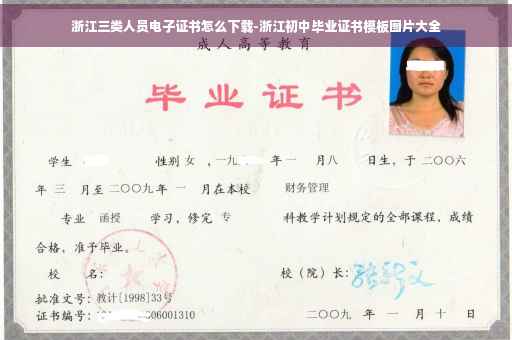 浙江三类人员电子证书怎么下载-浙江初中毕业证书模板图片大全
成人高等教育
毕业证书
学生 性别 女 ,一九 年 一 月八 日生,于二〇〇六
年 三 月至二〇〇九年 一 月在本校 财务管理
专业 函授 学习,修完 专 科教学计划规定的全部课程,成绩
合格,准予毕业。
校 名: 校(院)长:
批准文号:教计[1998]33号
证书编号: 06001310 二〇〇九 年 一 月 十 日